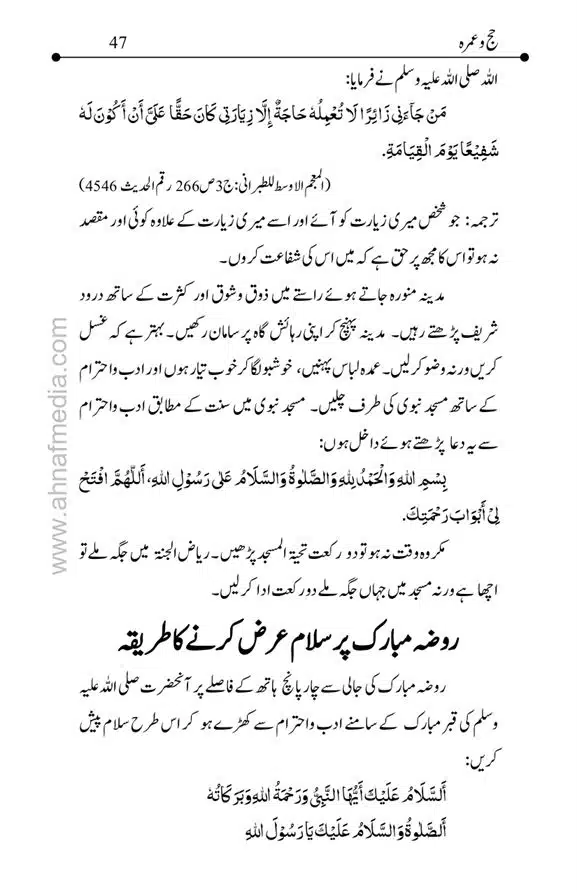 حج وعمرہ 47
اللہ صلی اللہ علیہ وسلم نے فرمایا:
مَنْ جَآءَنِيْ زَائِرًا لَا تُعْمِلُهٗ حَاجَةٌ إِلَّا زِيَارَتِيْ كَانَ حَقًّا عَلَيَّ أَنْ أَكُوْنَ لَهٗ
شَفِيْعًا يَوْمَ الْقِيَامَةِ.
(المعجم الاوسط للطبرانی: ج3 ص266 رقم الحدیث 4546)
ترجمہ: جو شخص میری زیارت کو آئے اور اسے میری زیارت کے علاوہ کوئی اور مقصد
نہ ہو تو اس کا مجھ پر حق ہے کہ میں اس کی شفاعت کروں۔
مدینہ منورہ جاتے ہوئے راستے میں ذوق وشوق اور کثرت کے ساتھ درود
شریف پڑھتے رہیں۔ مدینہ پہنچ کر اپنی رہائش گاہ پر سامان رکھیں۔ بہتر ہے کہ غسل
کریں ورنہ وضو کرلیں۔ عمدہ لباس پہنیں، خوشبو لگا کر خوب تیار ہوں اور ادب واحترام
کے ساتھ مسجد نبوی کی طرف چلیں۔ مسجد نبوی میں سنت کے مطابق ادب واحترام
سے یہ دعا پڑھتے ہوئے داخل ہوں:
بِسْمِ اللهِ وَالْحَمْدُ لِلهِ وَالصَّلٰوةُ وَالسَّلَامُ عَلٰى رَسُوْلِ اللهِ، أَللّٰهُمَّ افْتَحْ
لِيْ أَبْوَابَ رَحْمَتِكَ.
مکروہ وقت نہ ہو تو دو رکعت تحیۃ المسجد پڑھیں۔ ریاض الجنۃ میں جگہ ملے تو
اچھا ہے ورنہ مسجد میں جہاں جگہ ملے دو رکعت ادا کرلیں۔
روضہ مبارک پر سلام عرض کرنے کا طریقہ
روضہ مبارک کی جالی سے چار پانچ ہاتھ کے فاصلے پر آنحضرت صلی اللہ علیہ
وسلم کی قبر مبارک کے سامنے ادب واحترام سے کھڑے ہو کر اس طرح سلام پیش
کریں:
أَلسَّلَامُ عَلَيْكَ أَيُّهَا النَّبِيُّ وَرَحْمَةُ اللهِ وَبَرَكَاتُهٗ
أَلصَّلٰوةُ وَالسَّلَامُ عَلَيْكَ يَا رَسُوْلَ اللهِ
www.ahnafmedia.com